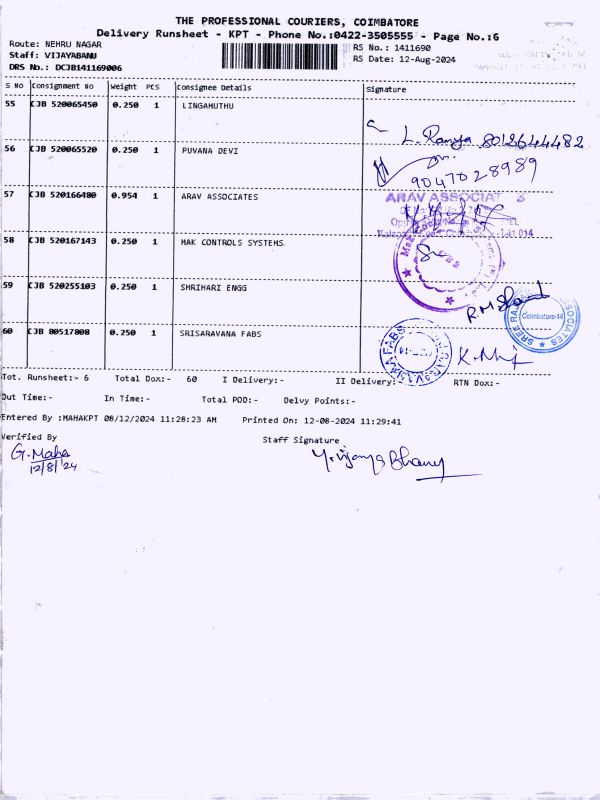 THE PROFESSIONAL COURIERS, COIMBATORE
Delivery Runsheet - KPT - Phone No.:0422-3505555 - Page No.:6
Route: NEHRU NAGAR
Staff: VIJAYABANU
DRS No.: DCJB141169006
RS No.: 1411690
RS Date: 12-Aug-2024
S No Consignment No Weight PCS Consignee Details Signature
55 CJB 520065450 0.250 1 LINGAMUTHU
L. Ramya 8012644482
56 CJB 520065520 0.250 1 PUVANA DEVI
9047028989
57 CJB 520166480 0.954 1 ARAV ASSOCIATES
ARAV ASSOCIAT S
58 CJB 520167143 0.250 1 MAK CONTROLS SYSTEMS
59 CJB 520255103 0.250 1 SHRIHARI ENGG
Coimbatore-14
60 CJB 80517008 0.250 1 SRISARAVANA FABS
Tot. Runsheet:- 6 Total Dox:- 60 I Delivery:- II Delivery:- RTN Dox:-
Out Time:- In Time:- Total POD:- Delvy Points:-
Entered By :MAHAKPT 08/12/2024 11:28:23 AM Printed On: 12-08-2024 11:29:41
Verified By
Staff Signature
G. Maha
12/8/24
Y. Vijaya Bhanu